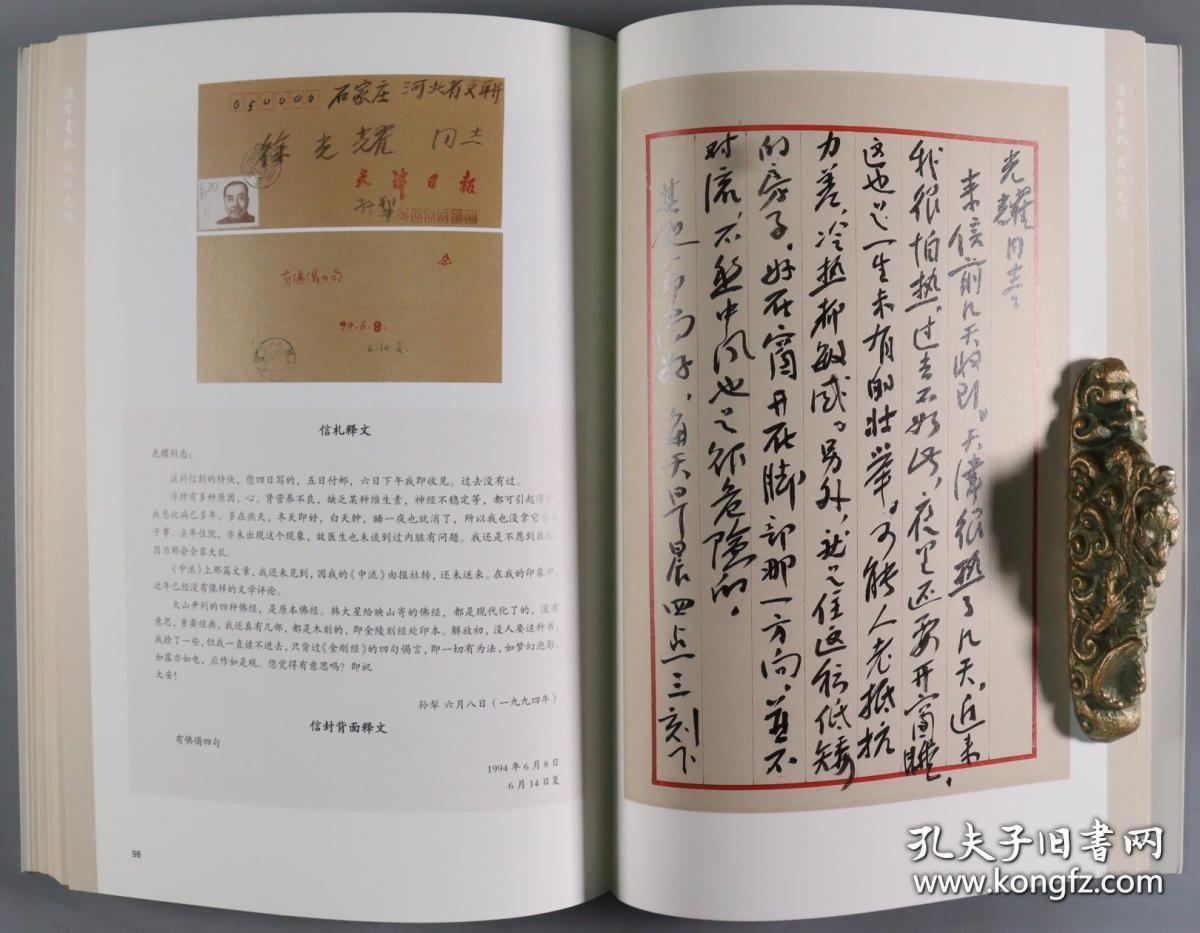 050000 石家庄 河北省文联
徐光耀 同志
20
天津日报
孙犁 300020
有佛偈四句
94.6.8.
6.14.复
信札释文
光耀同志：
这封信到的特快，您四日写的，五日付邮，六日下午我即收见。过去没有过。
浮肿有多种原因，心、肾营养不良，缺乏某种维生素，神经不稳定等，都可引起浮
我患此病已多年，多在热天，冬天即好，白天肿，睡一夜也就消了，所以我也没拿它当
子事。去年住院，亦未出现这个现象，故医生也未谈到过内脏有问题。我还是不愿到医
因为那会全家大乱。
《中流》上那篇文章，我还未见到，因我的《中流》由报社转，还未送来。在我的印象中，
近年已经没有像样的文学评论。
大山开列的四种佛经，是原本佛经。韩大星给映山寄的佛经，都是现代化了的，没有
意思，重要经典，我还真有几部，都是木刻的，即金陵刻经处印本。解放初，没人要这种书，
我捡了一些，但我一直读不进去，只背过《金刚经》的四句偈言，即一切有为法，如梦幻泡影，
如露亦如电，应作如是观。您觉得有意思吗？即祝
大安！
孙犁 六月八日（一九九四年）
信封背面释文
有佛偈四句
1994年6月8日
6月14日复
98
光耀同志：
来信前几天收到。天津很热了几天。近来
我很怕热，过去不如此，夜里还要开窗睡，
这也是一生未有的壮举。可能人老抵抗
力差，冷热都敏感。另外，就是住这种低矮
的房子，好在窗开在脚部那一方向，并不
对流，不然中风也是很危险的。
其他一切尚好，每天早晨四点三刻下
孔夫子旧书网
www.kongfz.com